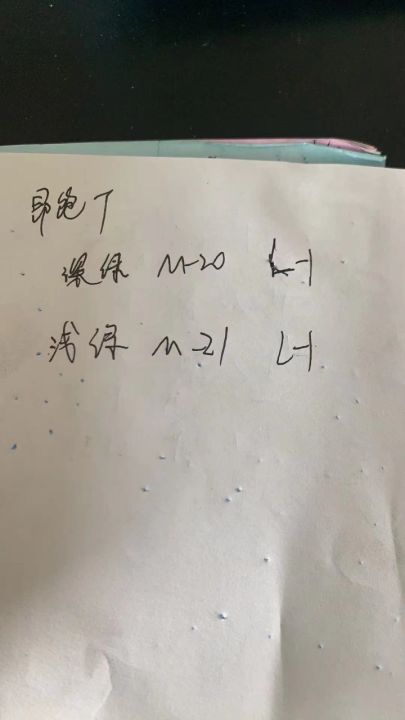 印跑丁
深绿 M-20 L-1
浅绿 M-21 L-1